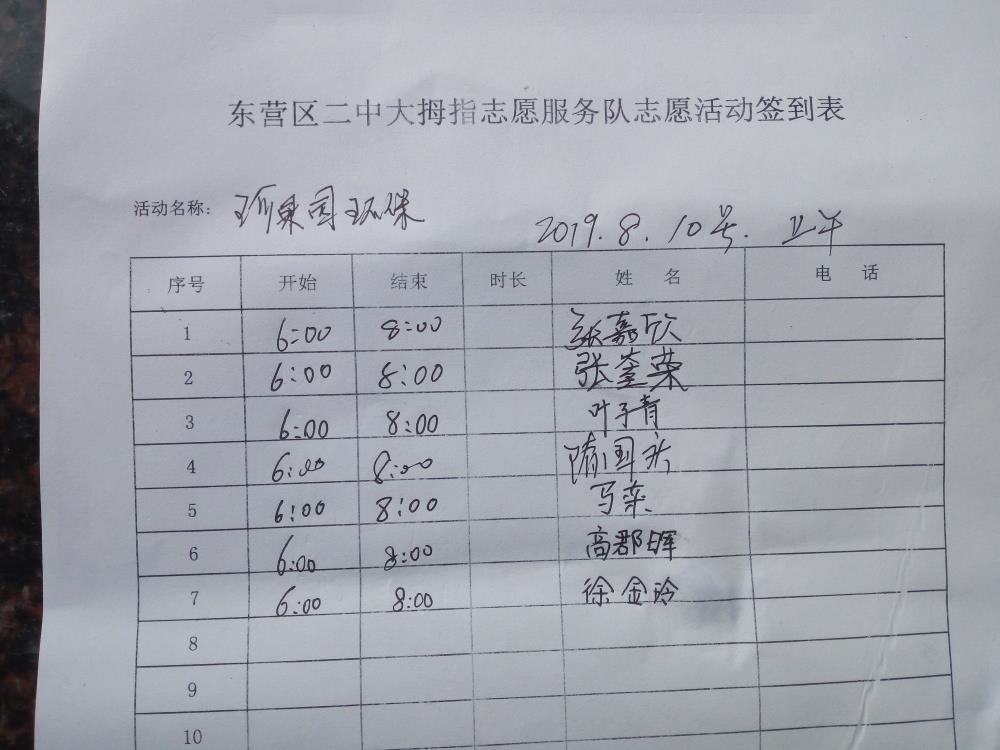 东营区二中大拇指志愿服务队志愿活动签到表
活动名称: 环保
2019.8.10号. 上午
序号 开始 结束 时长 姓名 电话
1 6:00 8:00 张嘉欣
2 6:00 8:00 张荣
3 6:00 8:00 叶子青
4 6:00 8:00 隋国
5 6:00 8:00 马栾
6 6:00 8:00 高郡晖
7 6:00 8:00 徐金玲
8
9
10